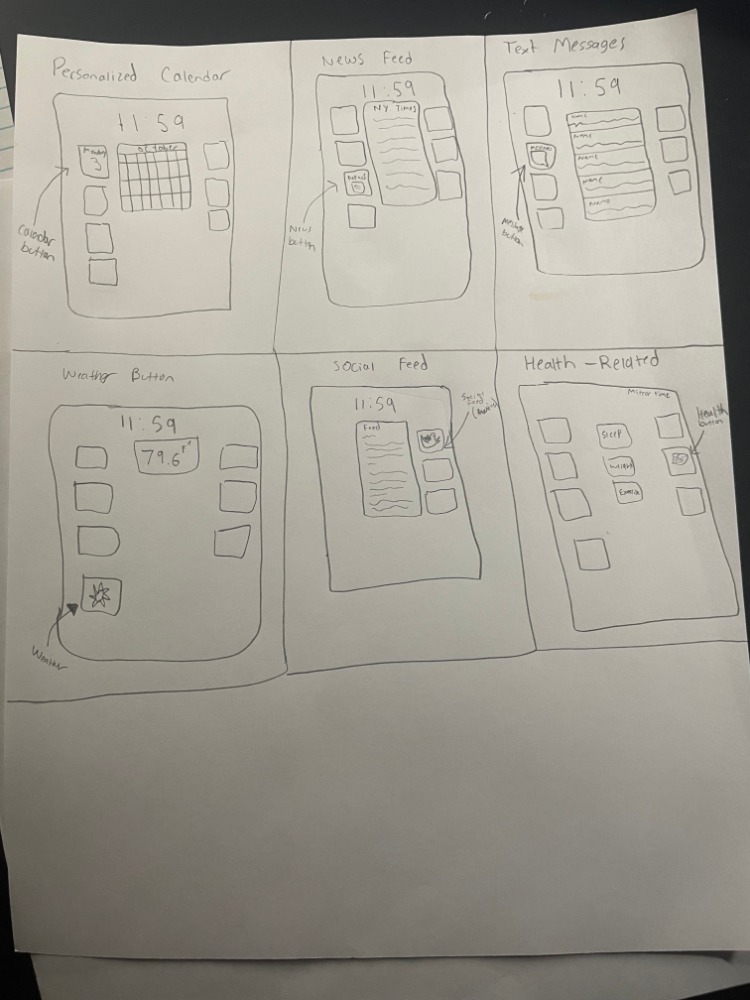 Personalized Calendar
11:59
Monday
3
October
Calendar
button
News Feed
11:59
NY Times
News
button
Text Messages
11:59
Name
Name
Name
Name
Name
Message
button
Weather Button
11:59
79.6°F
Weather
Social Feed
11:59
Feed
Social
Feed
Health-Related
Mirror time
Sleep
Weight
Exercise
Health
button